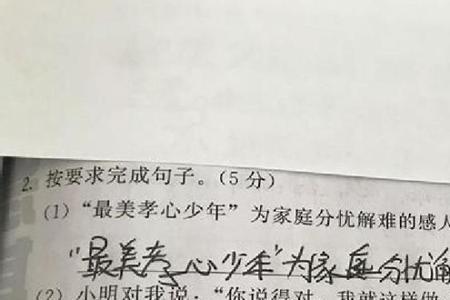 2. 按要求完成句子。(5分)
(1)“最美孝心少年”为家庭分忧解难的感人
“最美孝心少年”为家庭分忧解
(2)小明对我说：“你说得对，我就这样做